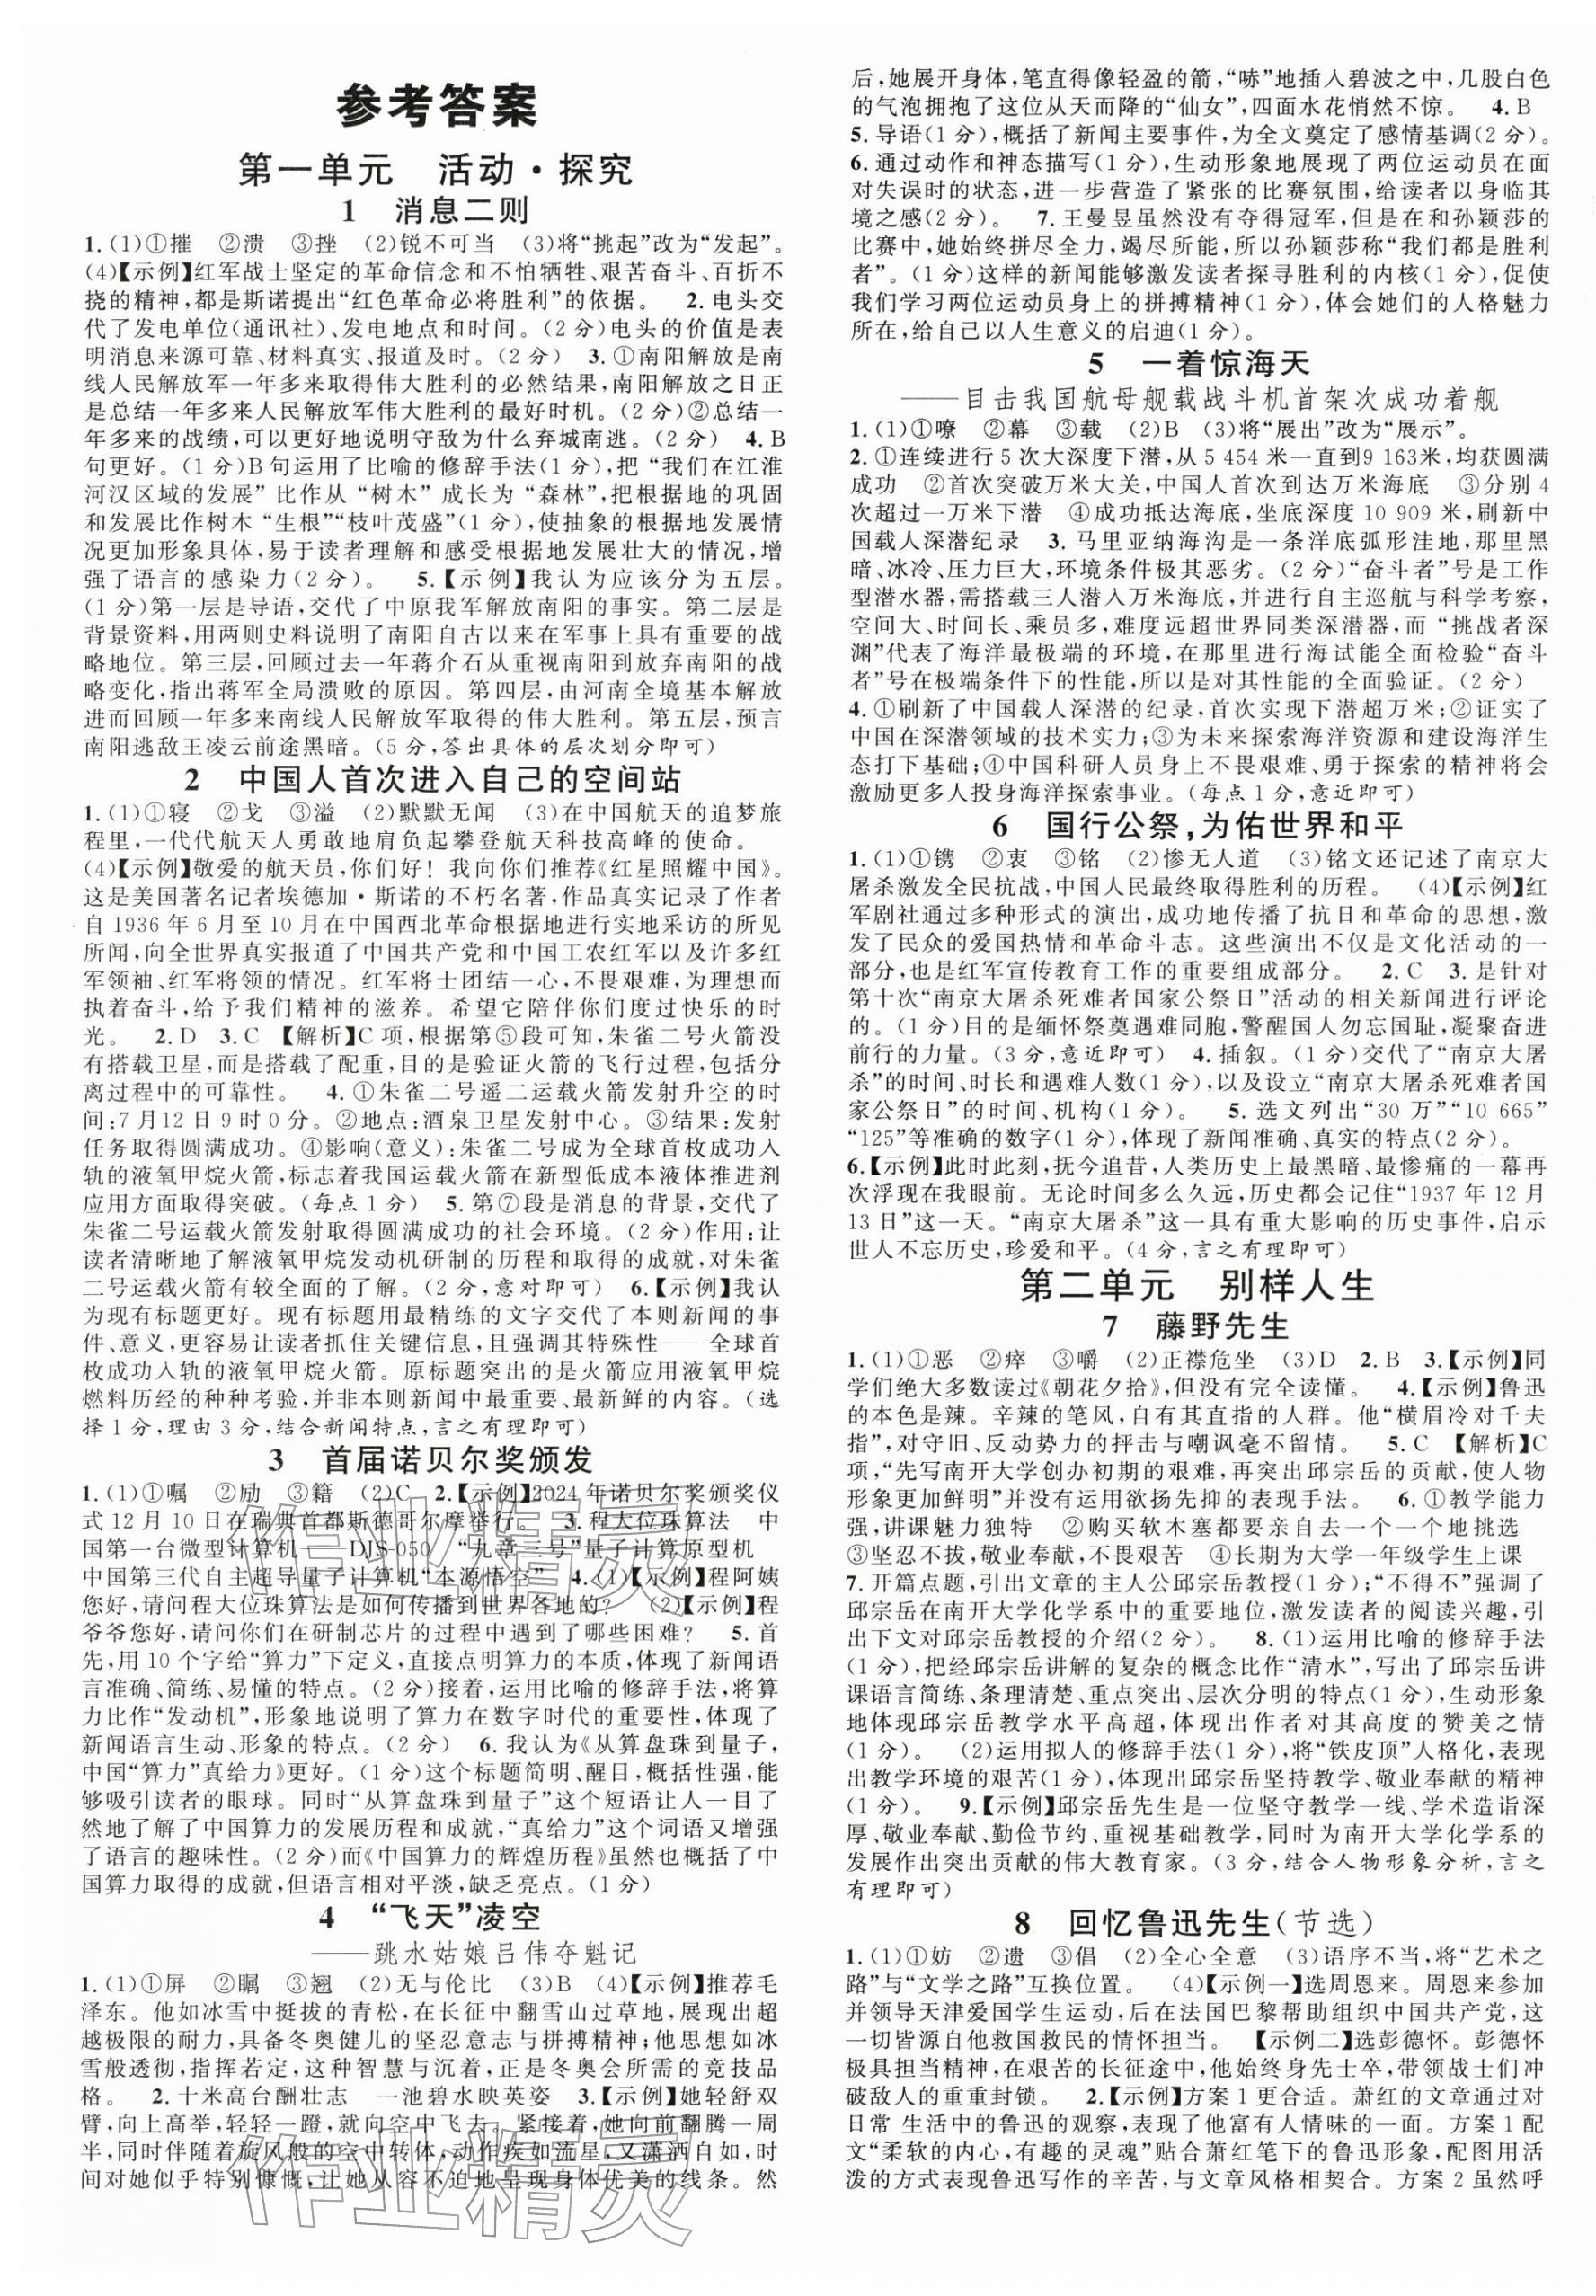 参考答案
第一单元　活动·探究
1　消息二则
1.(1)①摧　②溃　③挫　(2)锐不可当　(3)将“挑起”改为“发起”。
(4)【示例】红军战士坚定的革命信念和不怕牺牲、艰苦奋斗、百折不
挠的精神,都是斯诺提出“红色革命必将胜利”的依据。　2.电头交
代了发电单位(通讯社)、发电地点和时间。(2分)电头的价值是表
明消息来源可靠、材料真实、报道及时。(2分)　3.①南阳解放是南
线人民解放军一年多来取得伟大胜利的必然结果,南阳解放之日正
是总结一年多来人民解放军伟大胜利的最好时机。(2分)②总结一
年多来的战绩,可以更好地说明守敌为什么弃城南逃。(2分)　4.B
句更好。(1分)B句运用了比喻的修辞手法(1分),把“我们在江淮
河汉区域的发展”比作从“树木”成长为“森林”,把根据地的巩固
和发展比作树木“生根”“枝叶茂盛”(1分),使抽象的根据地发展情
况更加形象具体,易于读者理解和感受根据地发展壮大的情况,增
强了语言的感染力(2分)。　5.【示例】我认为应该分为五层。
(1分)第一层是导语,交代了中原我军解放南阳的事实。第二层是
背景资料,用两则史料说明了南阳自古以来在军事上具有重要的战
略地位。第三层,回顾过去一年蒋介石从重视南阳到放弃南阳的战
略变化,指出蒋军全局溃败的原因。第四层,由河南全境基本解放
进而回顾一年多来南线人民解放军取得的伟大胜利。第五层,预言
南阳逃敌王凌云前途黑暗。(5分,答出具体的层次划分即可)
2　中国人首次进入自己的空间站
1.(1)①寝　②戈　③溢　(2)默默无闻　(3)在中国航天的追梦旅
程里,一代代航天人勇敢地肩负起攀登航天科技高峰的使命。
(4)【示例】敬爱的航天员,你们好！我向你们推荐《红星照耀中国》。
这是美国著名记者埃德加·斯诺的不朽名著,作品真实记录了作者
自1936年6月至10月在中国西北革命根据地进行实地采访的所见
所闻,向全世界真实报道了中国共产党和中国工农红军以及许多红
军领袖、红军将领的情况。红军将士团结一心,不畏艰难,为理想而
执着奋斗,给予我们精神的滋养。希望它陪伴你们度过快乐的时
光。　2.D　3.C　【解析】C项,根据第⑤段可知,朱雀二号火箭没
有搭载卫星,而是搭载了配重,目的是验证火箭的飞行过程,包括分
离过程中的可靠性。　4.①朱雀二号遥二运载火箭发射升空的时
间:7月12日9时0分。②地点:酒泉卫星发射中心。③结果:发射
任务取得圆满成功。④影响(意义):朱雀二号成为全球首枚成功入
轨的液氧甲烷火箭,标志着我国运载火箭在新型低成本液体推进剂
应用方面取得突破。(每点1分)　5.第⑦段是消息的背景,交代了
朱雀二号运载火箭发射取得圆满成功的社会环境。(2分)作用:让
读者清晰地了解液氧甲烷发动机研制的历程和取得的成就,对朱雀
二号运载火箭有较全面的了解。(2分,意对即可)　6.【示例】我认
为现有标题更好。现有标题用最精练的文字交代了本则新闻的事
件、意义,更容易让读者抓住关键信息,且强调其特殊性——全球首
枚成功入轨的液氧甲烷火箭。原标题突出的是火箭应用液氧甲烷
燃料历经的种种考验,并非本则新闻中最重要、最新鲜的内容。(选
择1分,理由3分,结合新闻特点,言之有理即可)
3　首届诺贝尔奖颁发
1.(1)①嘱　②励　③籍　(2)C　2.【示例】2024年诺贝尔奖颁奖仪
式12月10日在瑞典首都斯德哥尔摩举行。　3.程大位珠算法　中
国第一台微型计算机——DJS-050　“九章三号”量子计算原型机
中国第三代自主超导量子计算机“本源悟空”　4.(1)【示例】程阿姨
您好,请问程大位珠算法是如何传播到世界各地的?　(2)【示例】程
爷爷您好,请问你们在研制芯片的过程中遇到了哪些困难?　5.首
先,用10个字给“算力”下定义,直接点明算力的本质,体现了新闻语
言准确、简练、易懂的特点。(2分)接着,运用比喻的修辞手法,将算
力比作“发动机”,形象地说明了算力在数字时代的重要性,体现了
新闻语言生动、形象的特点。(2分)　6.我认为《从算盘珠到量子,
中国“算力”真给力》更好。(1分)这个标题简明、醒目,概括性强,能
够吸引读者的眼球。同时“从算盘珠到量子”这个短语让人一目了
然地了解了中国算力的发展历程和成就,“真给力”这个词语又增强
了语言的趣味性。(2分)而《中国算力的辉煌历程》虽然也概括了中
国算力取得的成就,但语言相对平淡,缺乏亮点。(1分)
4　“飞天”凌空
——跳水姑娘吕伟夺魁记
1.(1)①屏　②瞩　③翘　(2)无与伦比　(3)B　(4)【示例】推荐毛
泽东。他如冰雪中挺拔的青松,在长征中翻雪山过草地,展现出超
越极限的耐力,具备冬奥健儿的坚忍意志与拼搏精神;他思想如冰
雪般透彻,指挥若定,这种智慧与沉着,正是冬奥会所需的竞技品
格。　2.十米高台酬壮志　一池碧水映英姿　3.【示例】她轻舒双
臂,向上高举,轻轻一蹬,就向空中飞去。紧接着,她向前翻腾一周
半,同时伴随着旋风般的空中转体,动作疾如流星,又潇洒自如,时
间对她似乎特别慷慨,让她从容不迫地呈现身体优美的线条。然
后,她展开身体,笔直得像轻盈的箭,“哧”地插入碧波之中,几股白色
的气泡拥抱了这位从天而降的“仙女”,四面水花悄然不惊。　4.B
5.导语(1分),概括了新闻主要事件,为全文奠定了感情基调(2分)。
6.通过动作和神态描写(1分),生动形象地展现了两位运动员在面
对失误时的状态,进一步营造了紧张的比赛氛围,给读者以身临其
境之感(2分)。　7.王曼昱虽然没有夺得冠军,但是在和孙颖莎的
比赛中,她始终拼尽全力,竭尽所能,所以孙颖莎称“我们都是胜利
者”。(1分)这样的新闻能够激发读者探寻胜利的内核(1分),促使
我们学习两位运动员身上的拼搏精神(1分),体会她们的人格魅力
所在,给自己以人生意义的启迪(1分)。
5　一着惊海天
——目击我国航母舰载战斗机首架次成功着舰
1.(1)①嘹　②幕　③载　(2)B　(3)将“展出”改为“展示”。
2.①连续进行5次大深度下潜,从5 454米一直到9 163米,均获圆满
成功　②首次突破万米大关,中国人首次到达万米海底　③分别4
次超过一万米下潜　④成功抵达海底,坐底深度10 909米,刷新中
国载人深潜纪录　3.马里亚纳海沟是一条洋底弧形洼地,那里黑
暗、冰冷、压力巨大,环境条件极其恶劣。(2分)“奋斗者”号是工作
型潜水器,需搭载三人潜入万米海底,并进行自主巡航与科学考察,
空间大、时间长、乘员多,难度远超世界同类深潜器,而“挑战者深
渊”代表了海洋最极端的环境,在那里进行海试能全面检验“奋斗
者”号在极端条件下的性能,所以是对其性能的全面验证。(2分)
4.①刷新了中国载人深潜的纪录,首次实现下潜超万米;②证实了
中国在深潜领域的技术实力;③为未来探索海洋资源和建设海洋生
态打下基础;④中国科研人员身上不畏艰难、勇于探索的精神将会
激励更多人投身海洋探索事业。(每点1分,意近即可)
6　国行公祭,为佑世界和平
1.(1)①镌　②衷　③铭　(2)惨无人道　(3)铭文还记述了南京大
屠杀激发全民抗战,中国人民最终取得胜利的历程。　(4)【示例】红
军剧社通过多种形式的演出,成功地传播了抗日和革命的思想,激
发了民众的爱国热情和革命斗志。这些演出不仅是文化活动的一
部分,也是红军宣传教育工作的重要组成部分。　2.C　3.是针对
第十次“南京大屠杀死难者国家公祭日”活动的相关新闻进行评论
的。(1分)目的是缅怀祭奠遇难同胞,警醒国人勿忘国耻,凝聚奋进
前行的力量。(3分,意近即可)　4.插叙。(1分)交代了“南京大屠
杀”的时间、时长和遇难人数(1分),以及设立“南京大屠杀死难者国
家公祭日”的时间、机构(1分)。　5.选文列出“30万”“10 665”
“125”等准确的数字(1分),体现了新闻准确、真实的特点(2分)。
6.【示例】此时此刻,抚今追昔,人类历史上最黑暗、最惨痛的一幕再
次浮现在我眼前。无论时间多么久远,历史都会记住“1937年12月
13日”这一天。“南京大屠杀”这一具有重大影响的历史事件,启示
世人不忘历史,珍爱和平。(4分,言之有理即可)
第二单元　别样人生
7　藤野先生
1.(1)①恶　②瘁　③嚼　(2)正襟危坐　(3)D　2.B　3.【示例】同
学们绝大多数读过《朝花夕拾》,但没有完全读懂。　4.【示例】鲁迅
的本色是辣。辛辣的笔风,自有其直指的人群。他“横眉冷对千夫
指”,对守旧、反动势力的抨击与嘲讽毫不留情。　5.C　【解析】C
项,“先写南开大学创办初期的艰难,再突出邱宗岳的贡献,使人物
形象更加鲜明”并没有运用欲扬先抑的表现手法。　6.①教学能力
强,讲课魅力独特　②购买软木塞都要亲自去一个一个地挑选
③坚忍不拔,敬业奉献,不畏艰苦　④长期为大学一年级学生上课
7.开篇点题,引出文章的主人公邱宗岳教授(1分);“不得不”强调了
邱宗岳在南开大学化学系中的重要地位,激发读者的阅读兴趣,引
出下文对邱宗岳教授的介绍(2分)。　8.(1)运用比喻的修辞手法
(1分),把经邱宗岳讲解的复杂的概念比作“清水”,写出了邱宗岳讲
课语言简练、条理清楚、重点突出、层次分明的特点(1分),生动形象
地体现邱宗岳教学水平高超,体现出作者对其高度的赞美之情
(1分)。　(2)运用拟人的修辞手法(1分),将“铁皮顶”人格化,表现
出教学环境的艰苦(1分),体现出邱宗岳坚持教学、敬业奉献的精神
(1分)。　9.【示例】邱宗岳先生是一位坚守教学一线、学术造诣深
厚、敬业奉献、勤俭节约、重视基础教学,同时为南开大学化学系的
发展作出突出贡献的伟大教育家。(3分,结合人物形象分析,言之
有理即可)
8　回忆鲁迅先生(节选)
1.(1)①妨　②遗　③倡　(2)全心全意　(3)语序不当,将“艺术之
路”与“文学之路”互换位置。　(4)【示例一】选周恩来。周恩来参加
并领导天津爱国学生运动,后在法国巴黎帮助组织中国共产党,这
一切皆源自他救国救民的情怀担当。　【示例二】选彭德怀。彭德怀
极具担当精神,在艰苦的长征途中,他始终身先士卒,带领战士们冲
破敌人的重重封锁。　2.【示例】方案1更合适。萧红的文章通过对
日常 生活中的鲁迅的观察,表现了他富有人情味的一面。方案1配
文“柔软的内心,有趣的灵魂”贴合萧红笔下的鲁迅形象,配图用活
泼的方式表现鲁迅写作的辛苦,与文章风格相契合。方案2虽然呼
作业精灵
作业精灵